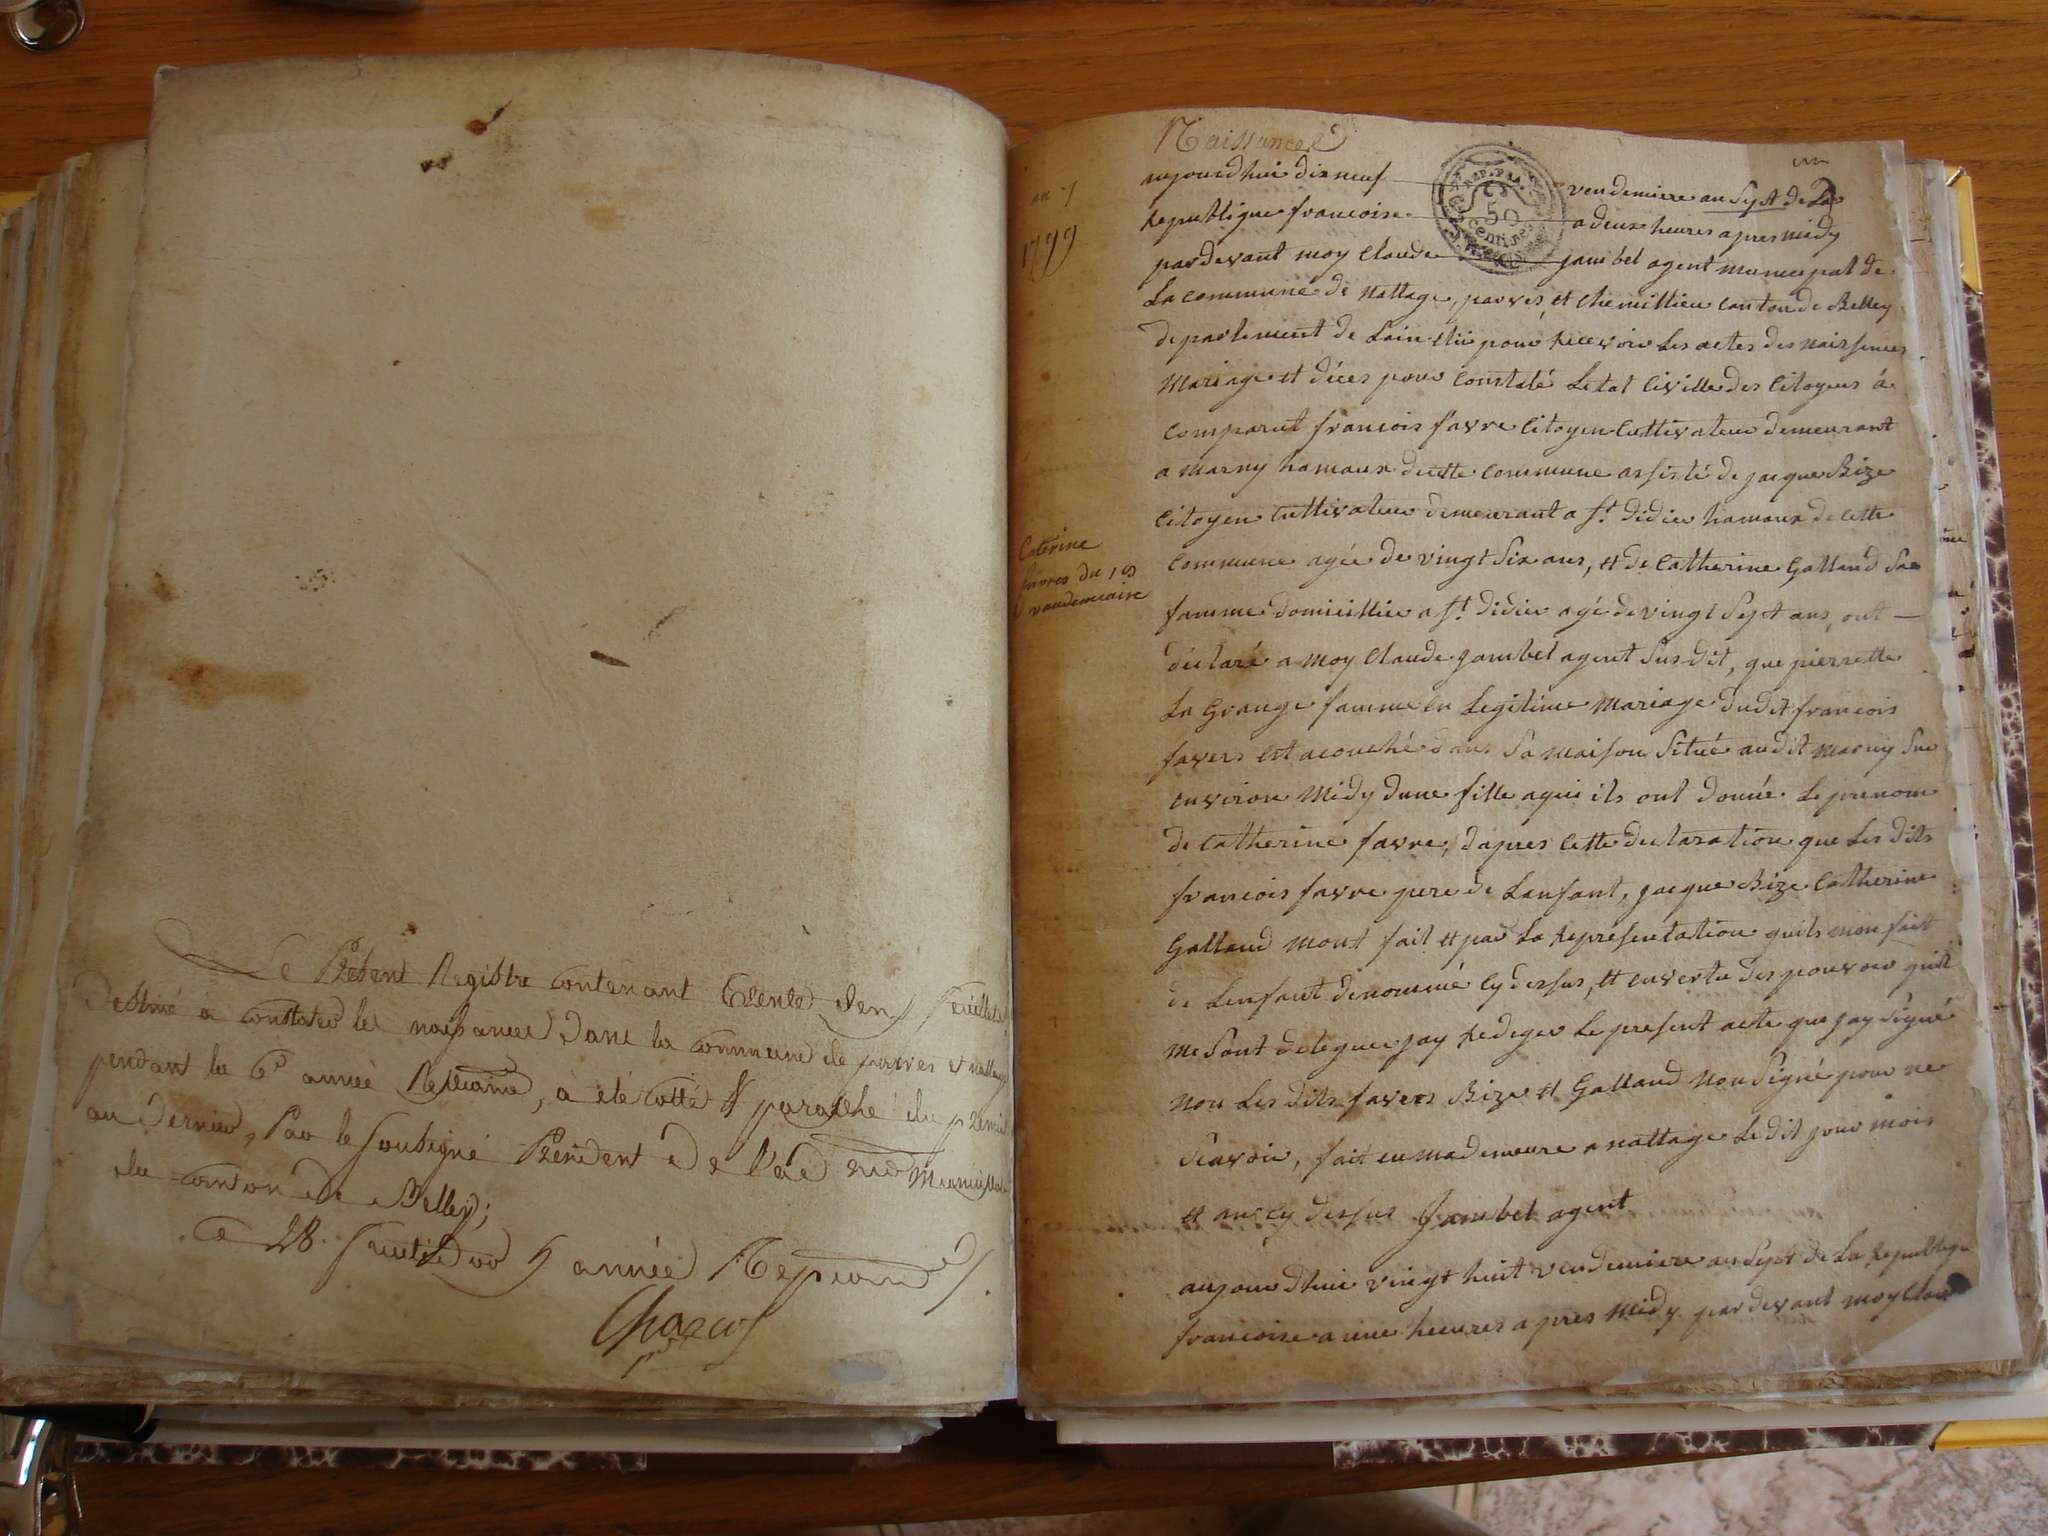 Le Présent Registre contenant trente deux feuillets,
destiné a constater les naissances dans la commune de parves et nattage
pendant la 6e année Republicaine, a été cotté & paraphé du premier
au dernier, Par le soussigné Président de l'ad mon Municipale
du canton de Belley;
Ce 28. fructidor 5 année Repicaine
Naissances
un
an 7
1799
aujourdhui dixneuf vendemiere an Sept de La
REP. FRA.
50
Centimes
Republique francoise a deux heures apres midy
pardevant moy Claude jambel agent municipal de
La commune de Nattage, parves, et chemillieu canton de Belley
departement de Lain elu pour recevoir Les actes des naissences
Mariage et déces pour constaté Letat Civille des Citoyens á
comparut francois favre Citoyen Cultivateur demeurant
a marny hamaux decette commune assisté de jacque Bize
Citoyen Cultivateur demeurant a st. didier hamaux de cette
Caterine
favres du 19
vandemiaire
commune agée de vingt Six ans, et de Catherine Galland Sa
famme domicilliee a st. didier agé de vingt Sept ans, ont
déclaré a moy Claude jambel agent Sus dit, que pierrette
La Grange famme en Legitime Mariage dudit francois
favers est acouché dans Sa maison Située audit marny Sur
environ Midy dune fille aqui ils ont donné Le prenom
de Catherine favre, dapres cette declaration que Les dits
francois favre pere de Lenfant, jacque Bize Catherine
Galland mont fait et par La Representation quils mon fait
de Lenfant denommé cy dessus, et envertu des pouvoir quil
me Sont delegues jay Rediger Le present acte que jay Signé
non Les dits favers Bize et Galland non Signé pour ne
Scavoir, fait en ma demeure a nattage Le dit jour mois
et an cy dessus Jambel agent
aujourdhui vingt huit vendemiere an Sept de La Republique
francoise a une heures apres midy pardevant moy Clau